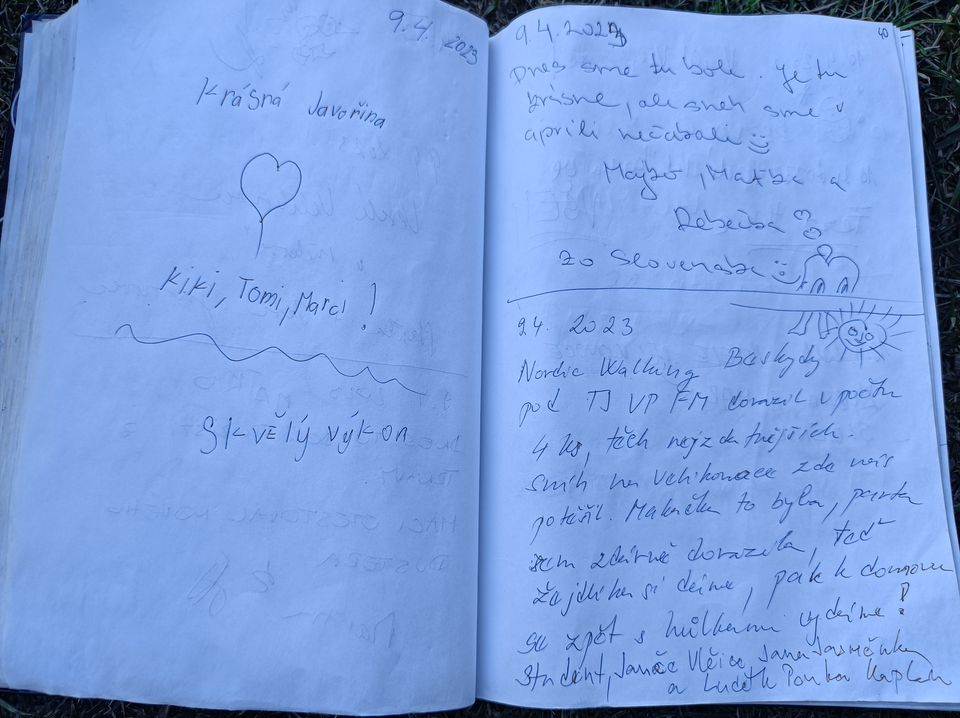 9.4. 2023
Krásná Javořina
Kiki, Tomi, Marci!
Skvělý výkon
40
9.4.2023
Dnes sme tu boli. Je tu
krásne, ale sneh sme v
aprili nečakali
Majko, Maťka a
Rebečka
zo Slovenska
9.4. 2023
Nordic Walking Beskydy
pod TJ VP FM dorazil v počtu
4 ks, těch nejzdatnějších.
Sníh na Velikonoce zde nás
potěšil. Makačka to byla, parta
sem zdárně dorazila, teď
žejdlíka si dáme, pak k domovu
se zpět s hůlkami vydáme!
Student, Vlčice, Jana
a Luděk Kaplan